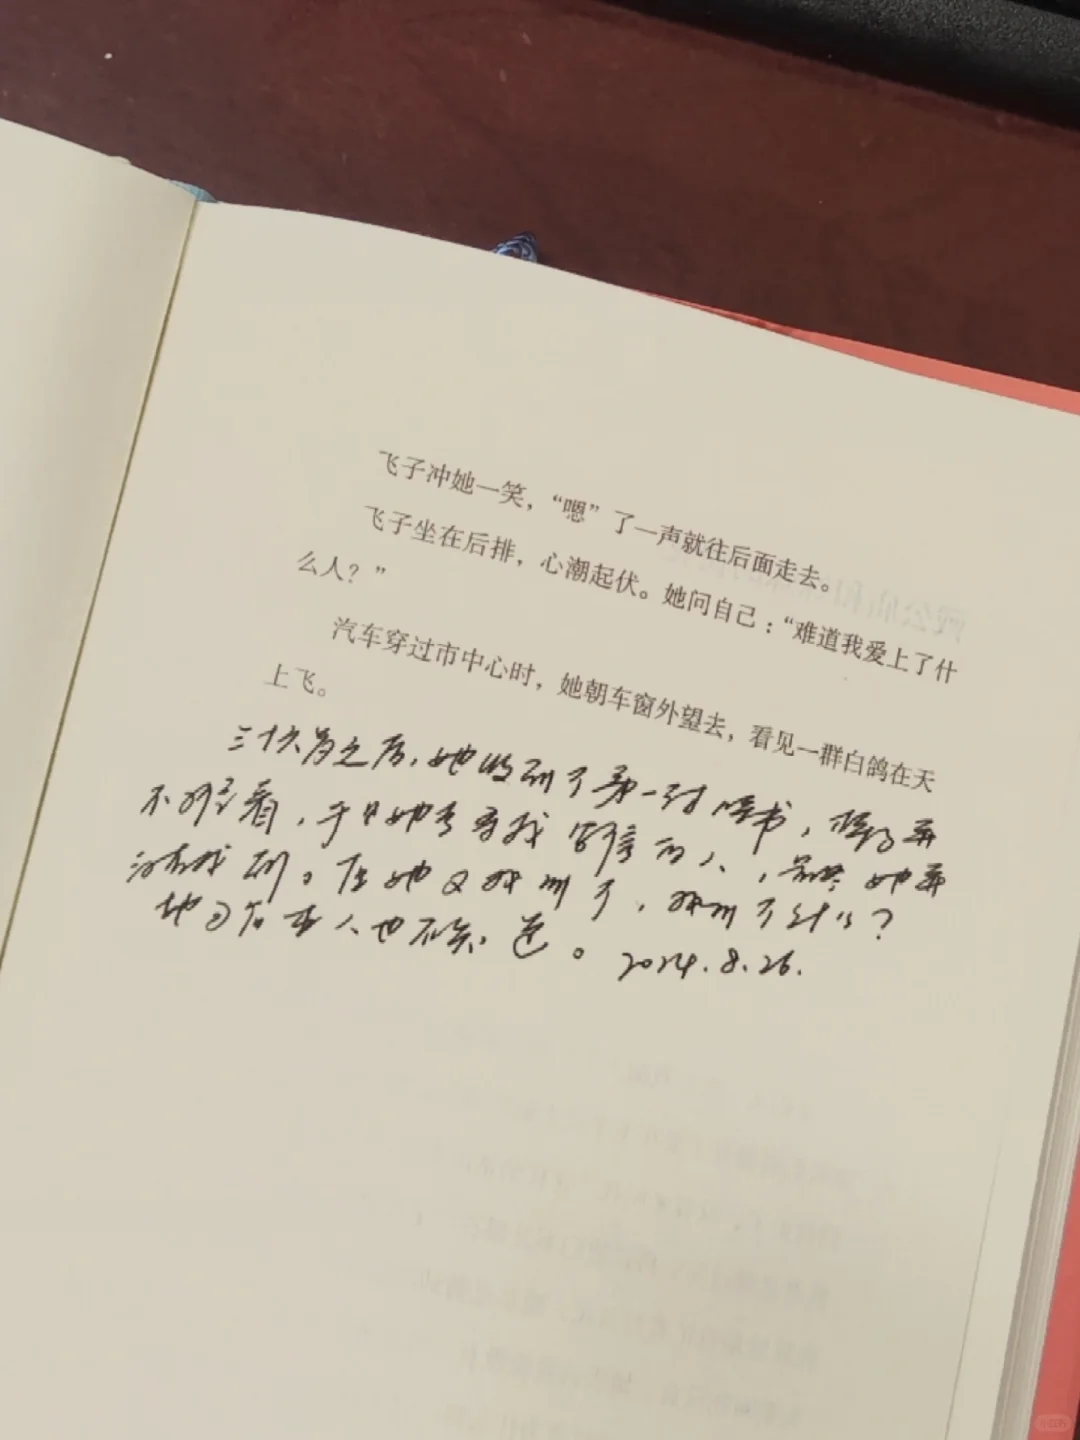 飞子冲她一笑，“嗯”了一声就往后面走去。
飞子坐在后排，心潮起伏。她问自己：“难道我爱上了什
么人？”
汽车穿过市中心时，她朝车窗外望去，看见一群白鸽在天
上飞。
三十六岁之后，她收到了第一封情书，情书并
不好看，于是她去寻找写信的人，最终她并
没有找到。但她又找到了，找到了什么？
她自己本人也不知道。2024.8.26.